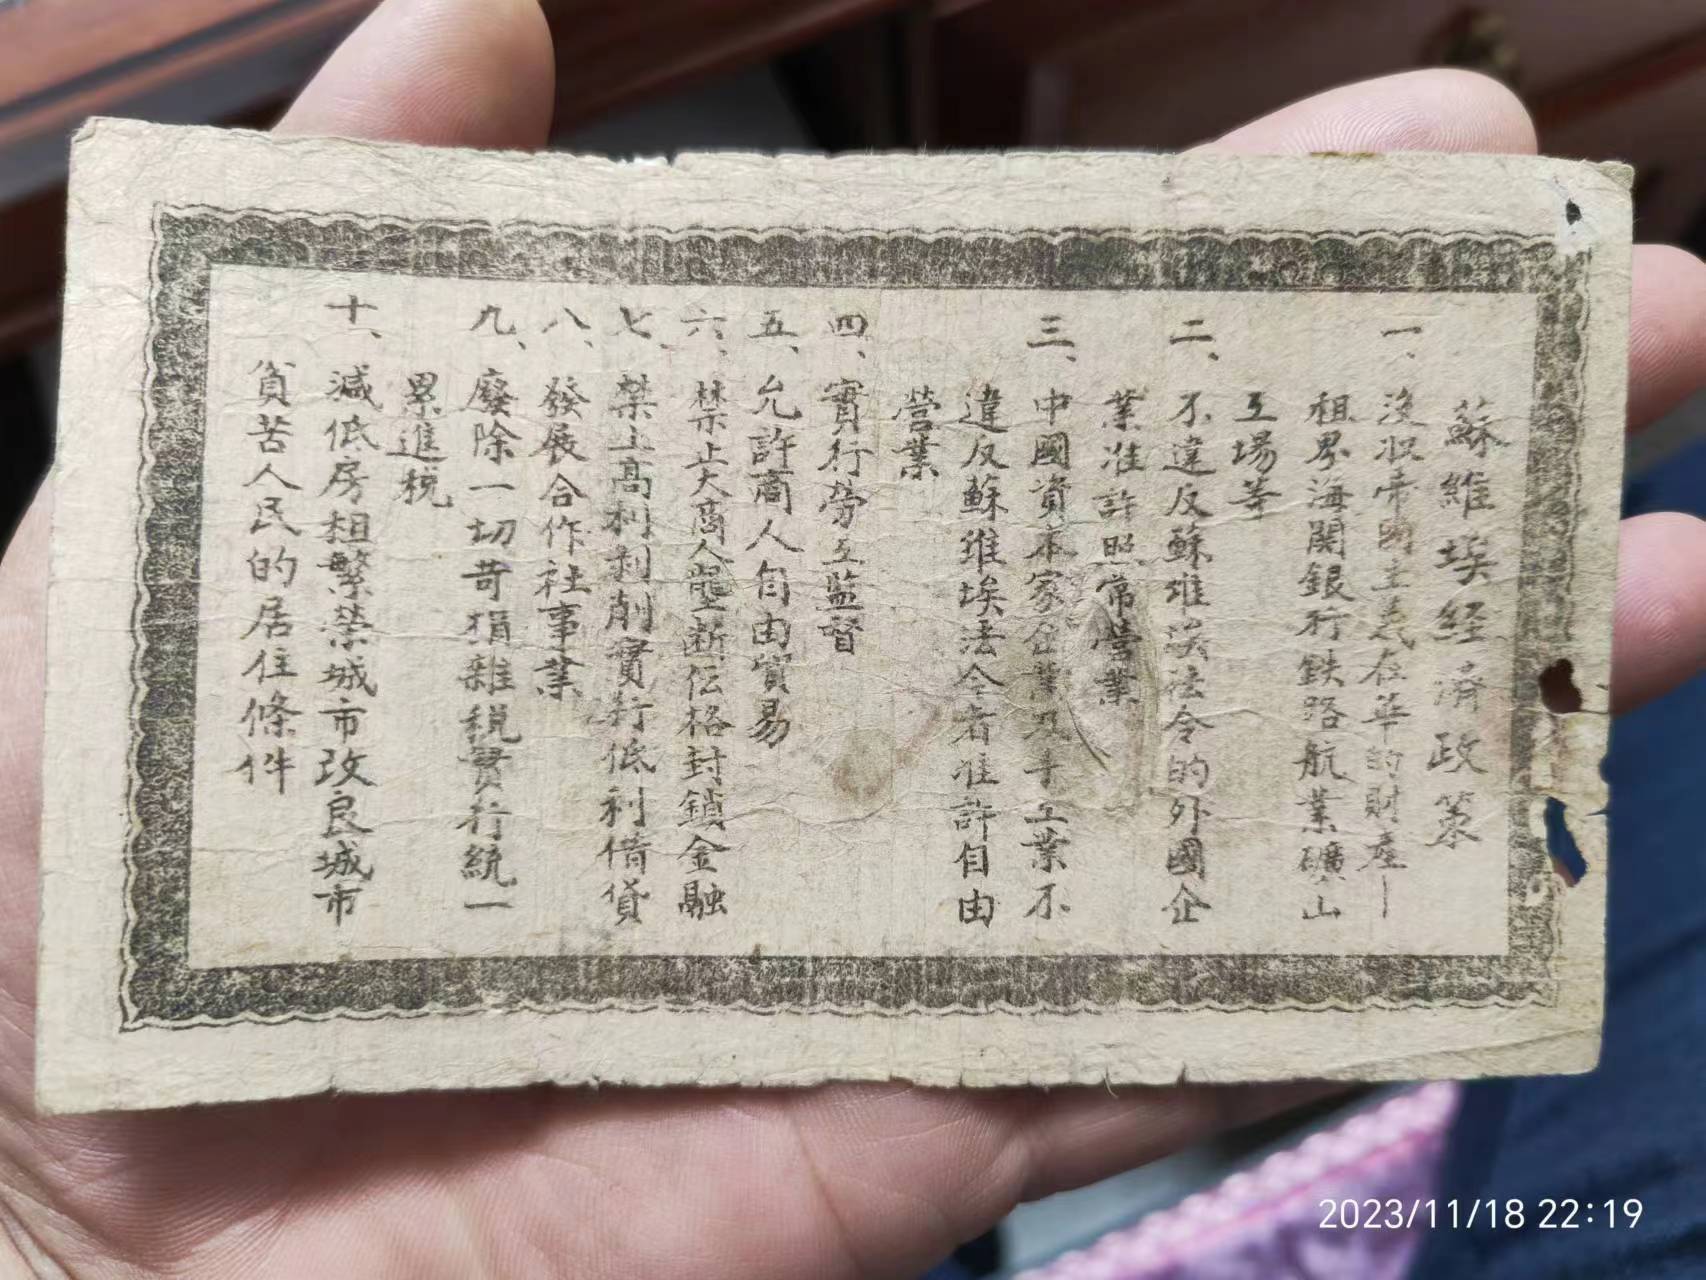 蘇維埃経済政策
一、没收帝國主義在華的財産—
租界海関銀行鉄路航業礦山
工場等
二、不違反蘇維埃法令的外國企
業准許照常營業
三、中國資本家企業及手工業不
違反蘇維埃法令者准許自由
營業
四、實行勞工監督
五、允許商人自由貿易
六、禁止大商人壟断伝格封鎖金融
七、禁止高利剥削實行低利借貸
八、發展合作社事業
九、廢除一切苛捐雜税實行統一
累進税
十、減低房租繁榮城市改良城市
貧苦人民的居住條件
2023/11/18 22:19